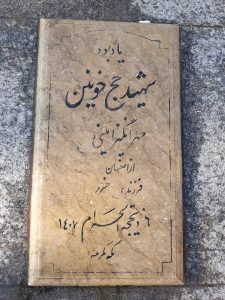 یادبود
شهید حج خونین
مهرانگیز
از اصفهان
فرزند:
۶ ذیحجه الحرام ۱۴۰۷
مکه مکرمه